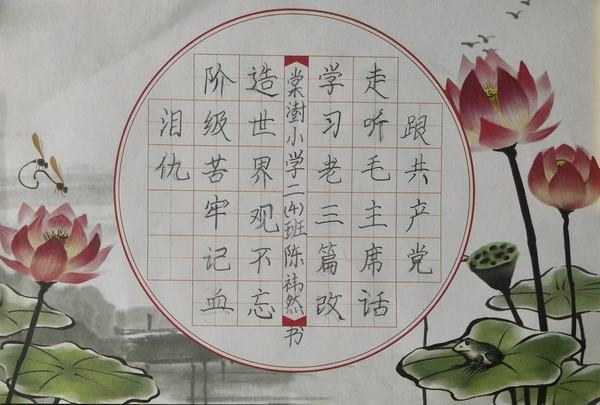 跟共产党
走听毛主席话
学习老三篇改
棠澍小学二(4)班陈祎然书
造世界观不忘
阶级苦牢记血
泪仇